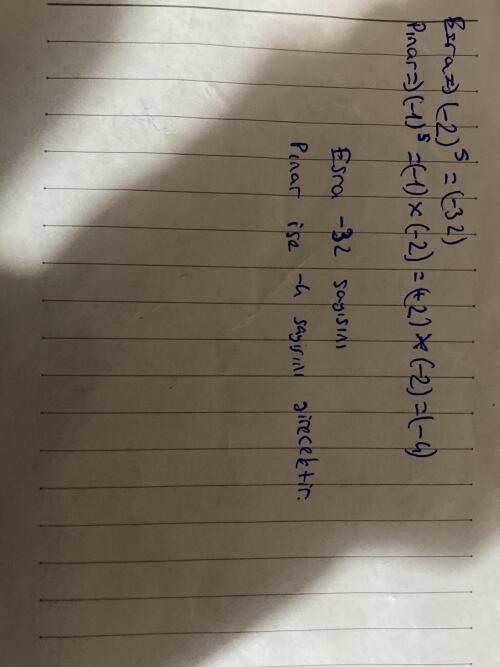 Esra=> (-2)⁵ = (-32)
Pınar=> (-1)⁵ = (-1) x (-2) = (+2) x (-2) = (-4)
Esra -32 sayısını
Pınar ise -4 sayısını girecektir.